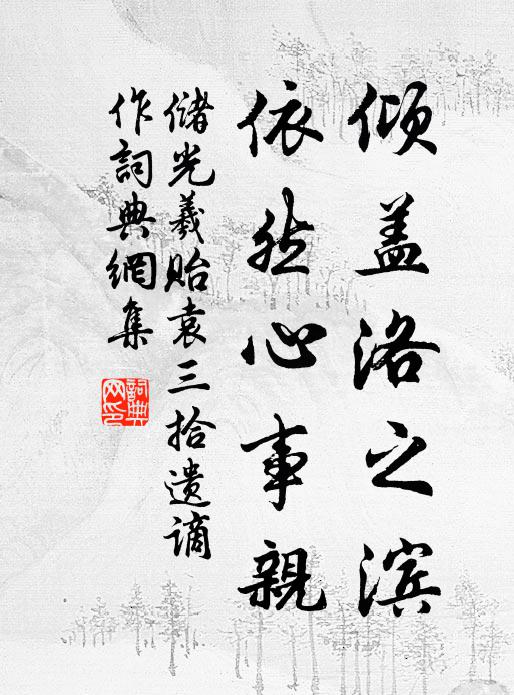 倾盖洛之滨
依然心事親
储光羲贻袁三拾遗谪
作詞典網集
詞典網印